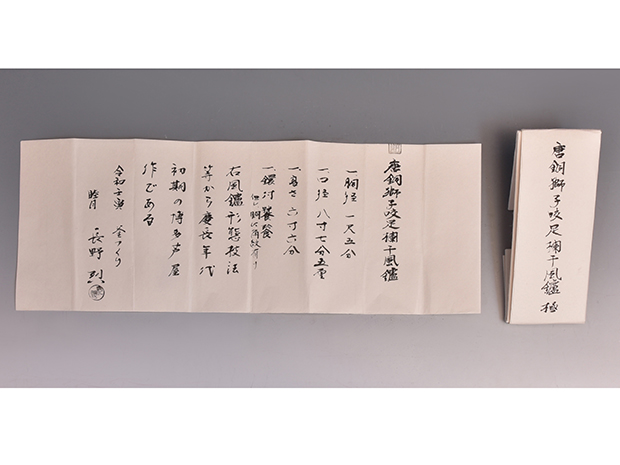 唐銅獅子咬足欄干風鑪
一 胴径 一尺五分
一 口径 八寸七分五厘
一 高さ 六寸六分
一 鐶付 饕餮
右風鑪形態技法
等から慶長年代
初期の博多芦屋
作である
令和 釜つくり
睦月 長野 烈
唐銅獅子咬足欄干風鑪 極